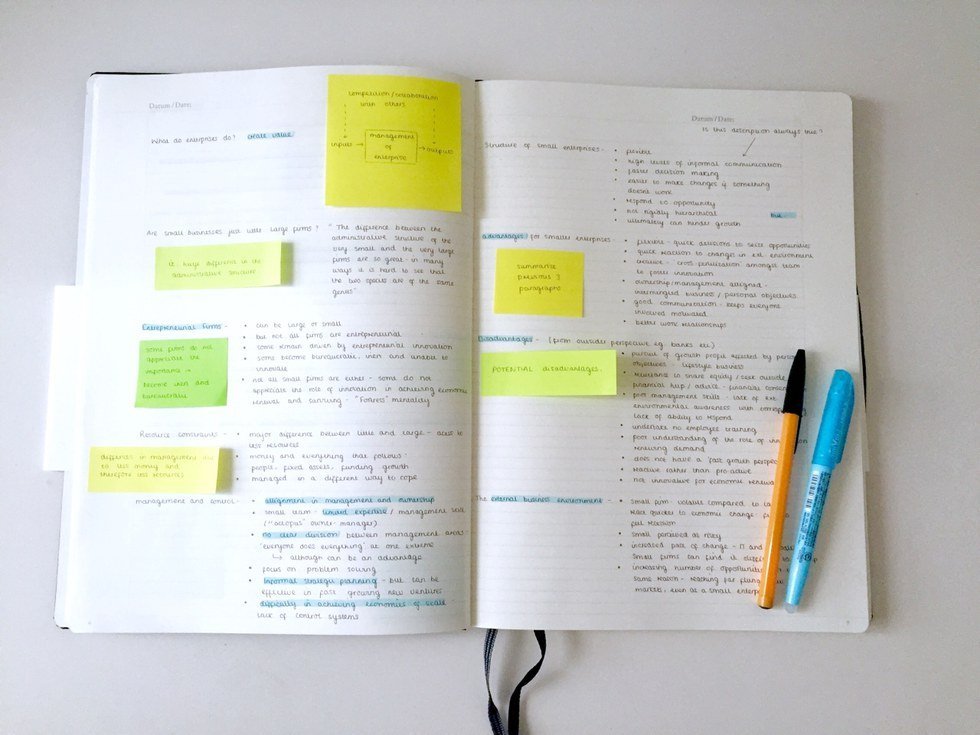 Datum / Date:
What do enterprises do? create value
competition / collaboration
with others
inputs → management of enterprise → outputs
Are small businesses just little large firms?
"The difference between the
administrative structure of the
very small and the very large
firms are so great - in many
ways it is hard to see that
the two species are of the same
genus"
i.e. huge difference in the
administrative structure
Entrepreneurial Firms -
• can be large or small
• but not all firms are entrepreneurial
• some remain driven by entrepreneurial innovation
• some become bureaucratic, inert and unable to
innovate
• not all small firms are either - some do not
appreciate the role of innovation in achieving economic
renewal and survival - "Fortress" mentality
some firms do not
appreciate the
importance →
become inert and
bureaucratic
Resource constraints -
• major difference between little and large - access to
less resources
• money and everything that follows:
• people, fixed assets, funding growth
• managed in a different way to cope
differs in management due
to less money and
therefore less resources
management and control -
• alignment in management and ownership
• small team - limited expertise / management skill
("octopus" owner-manager)
• no clear division between management areas
'everyone does everything' at one extreme
↳ although can be an advantage
focus on problem solving
• informal strategic planning - but can be
effective in fast growing new ventures
• difficulty in achieving economies of scale -
lack of control systems
Datum / Date:
Is this description always true?
Structure of small enterprises -
• flexible
• high levels of informal communication
• faster decision making
• easier to make changes if something
doesnt work
• respond to opportunity
• not rigidly hierarchical but -
• ultimately can hinder growth
advantages for smaller enterprises -
• flexible - quick decisions to seize opportunities
• quick reaction to changes in ext. environment
• creative - cross-fertilisation amongst team
to foster innovation
• ownership/management aligned -
intermingled business / personal objectives
• good communication - keeps everyone
involved motivated
• better work relationships
summarise
previous 3
paragraphs
Disadvantages - (from outsider perspective eg. banks etc)
• pursuit of growth profit affected by
objectives - lifestyle business
• reluctance to share equity / seek outside
financial help / advice - financial
• poor management skills - lack of ext.
environmental awareness with
lack of ability to respond
• undertake no employee training
• poor understanding of the role of
renewing demand
• does not have a 'fast growth
• reactive rather than pro-active
• not innovative for economic
POTENTIAL disadvantages.
The external business environment -
• small firm - volatile compared to
react quicker to economic change -
• small perceived as risky
• increased pace of change - IT and
small firms can find it
• increasing number of opportunities
same reason - reaching far
markets, even as a small